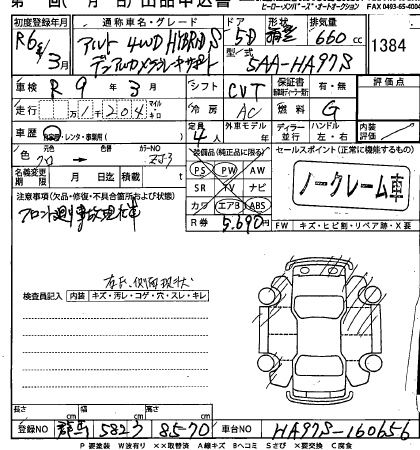 第 回( 月 日) 出品申込書
ヒーローメンバーズ・オートオークション FAX 0493-65-4004
初度登録年月 通称車名・グレード ドア 形状 排気量
R6年 3月 アルト 4WD HYBRID S 5D 660cc 1384
型式 5AA-HA97S
車検 R 9年 3月 シフト CVT 保証書 有・無 評価点
走行 1千204 マイル キロ 冷房 AC 燃料 G
車歴 自家用・レンタ・事業用( ) 定員 4人 外車モデル ディラー 並行 ハンドル 左・右 内装評価
色 クロ 元色 番号 ZJ3 装備品(純正品に限る) セールスポイント(正常に機能するもの)
名義変更期限 月 日迄 積載 t PS PW AW
SR TV ナビ
カワ エアB ABS
ノークレーム車
注意事項(欠品・修復・不具合箇所および状態)
フロント廻り事故現状車
R券 5,690円 FW キズ・ヒビ割・リペア跡・X要
左右側面現状
検査員記入 内装 キズ・汚レ・コゲ・穴・スレ・キレ
長さ cm 幅 cm 高さ cm
登録NO 群馬 582 ﾌ 85-70 車台NO HA97S-160656
P 要塗装 W波有り ××取替済 A線キズ Bヘコミ Sさび X要交換 C腐食